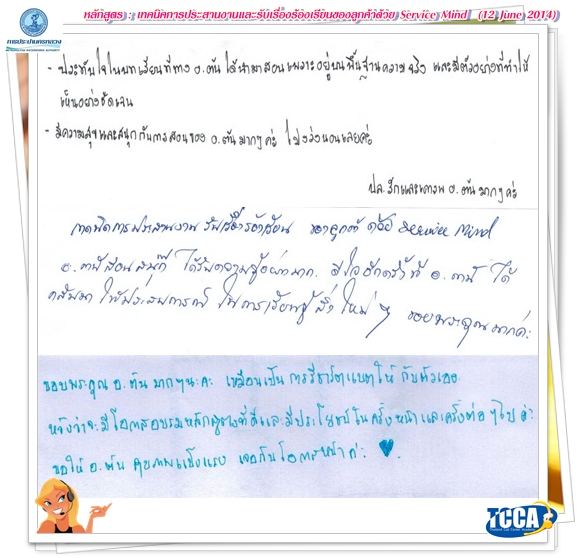 หลักสูตร : เทคนิคการประสานงานและรับเรื่องร้องเรียนของลูกค้าด้วย Service Mind (12 June 2014)
การประปานครหลวง
- ประทับใจในบทเรียนที่ทาง อ.ต้น ได้นำมาสอนเพราะอยู่บนพื้นฐานความจริง และมีตัวอย่างที่ทำให้
เห็นอย่างชัดเจน
- มีความสุขและสนุกกับการสอนของ อ.ต้น มากๆ ค่ะ ไม่ง่วงนอนเลยค่ะ
ปล. รักและเคารพ อ.ต้น มากๆ ค่ะ
เทคนิคการประสานงาน รับเรื่องร้องเรียน ของลูกค้า ด้วย Service Mind
อ.ต้นสอนสนุก ได้รับความรู้อย่างมาก ดีใจอีกครั้งที่ อ.ต้น ได้
กลับมา ให้ประสบการณ์ ในการเรียนรู้สิ่งใหม่ ๆ ขอบพระคุณมากค่ะ
ขอบพระคุณ อ.ต้น มากๆนะคะ เหมือนเป็นการรีชาร์ตแบตให้กับตัวเอง
หวังว่าจะมีโอกาสอบรมหลักสูตรที่ดีและมีประโยชน์ในครั้งหน้าและครั้งต่อๆไปค่ะ
ขอให้ อ.ต้น สุขภาพแข็งแรง เจอกันโอกาสหน้าค่ะ
TCCA